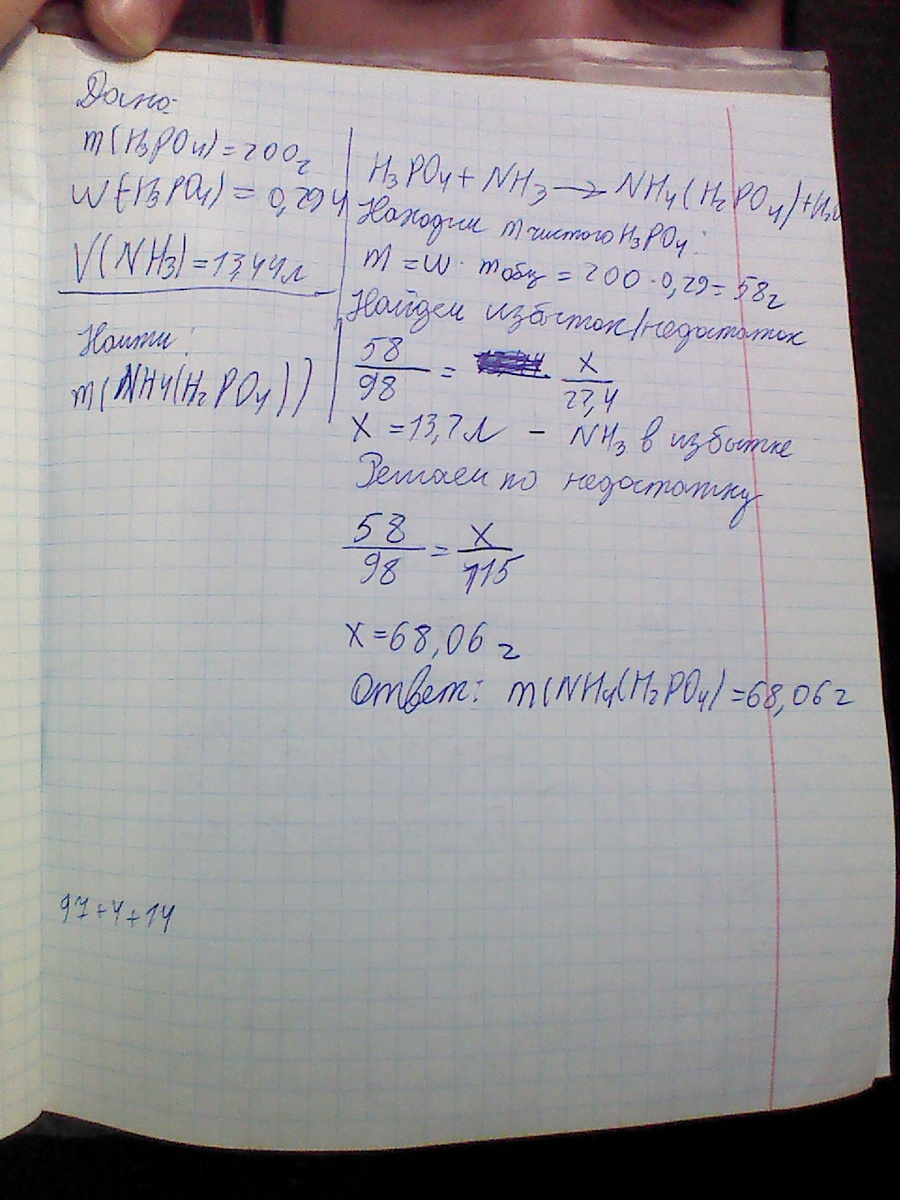 Дано:
m(H3PO4)=200г
W(H3PO4) = 0,294
V(NH3)=13,44л
Найти:
m(NH4(H2PO4))
H3PO4 + NH3 → NH4(H2PO4)+H2O
Находим m чистого H3PO4:
m = w · mобщ = 200 · 0,29 = 58г
Найдем избыток/недостаток
58/98 = x/22,4
x = 13,2л - NH3 в избытке
Решаем по недостатку
58/98 = x/115
x=68,06 г
Ответ: m(NH4(H2PO4)=68,06г
97+4+14